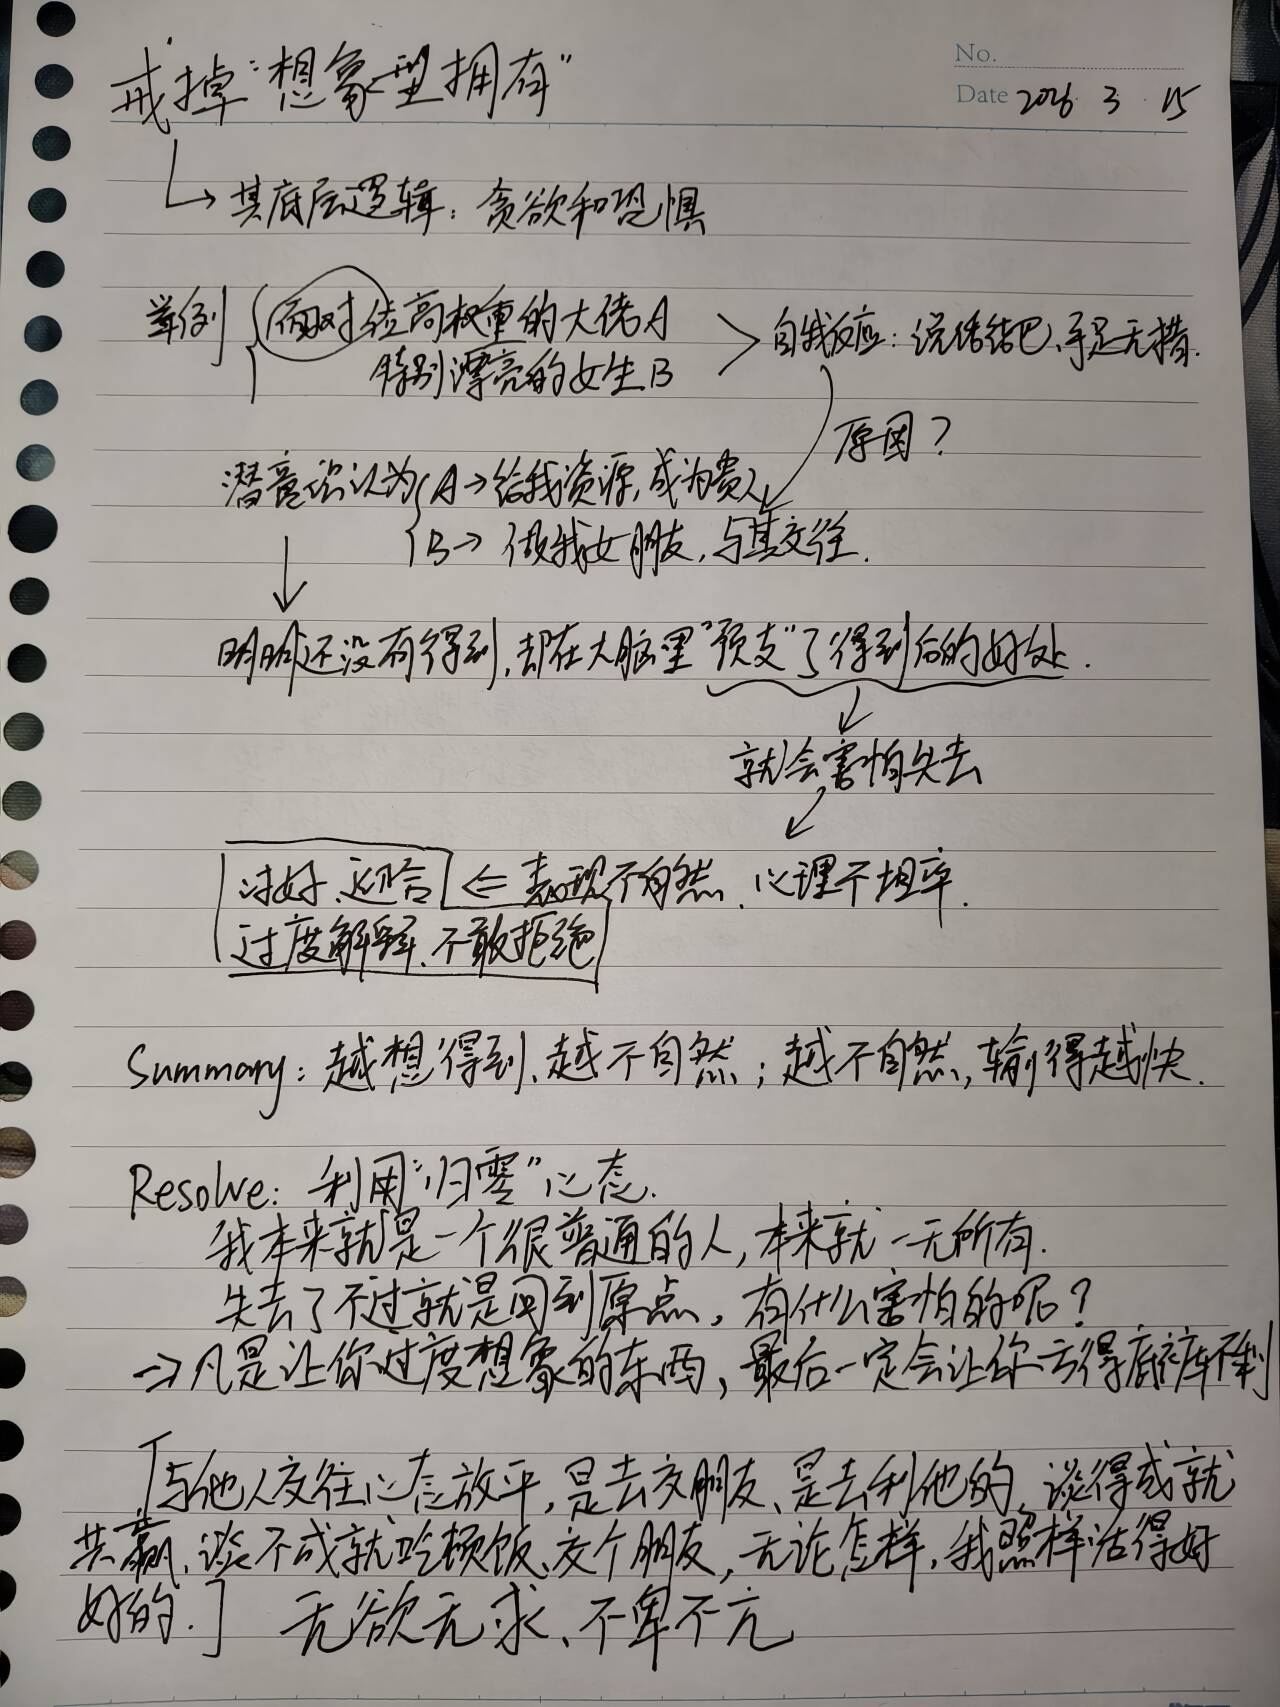 No.
Date 2026. 3. 15
戒掉"想象型拥有"
↳ 其底层逻辑：贪欲和恐惧
举例{面对位高权重的大佬A
特别漂亮的女生B
> 自我反应：说话结巴、手足无措.
原因？
潜意识认为{A→给我资源,成为贵人
B→ 做我女朋友,与其交往.
明明还没有得到,却在大脑里"预支"了得到后的好处.
就会害怕失去
讨好、迎合 ⇐ 表现不自然、心理不坦率.
过度解释、不敢拒绝
Summary: 越想得到、越不自然；越不自然,输得越快.
Resolve: 利用"归零"心态.
我本来就是一个很普通的人,本来就一无所有.
失去了不过就是回到原点,有什么害怕的呢？
⇒凡是让你过度想象的东西,最后一定会让你亏得底裤不剩
[与他人交往心态放平,是去交朋友、是去利他的,谈得成就
共赢,谈不成就吃顿饭、交个朋友,无论怎样,我照样活得好
好的.] 无欲无求、不卑不亢